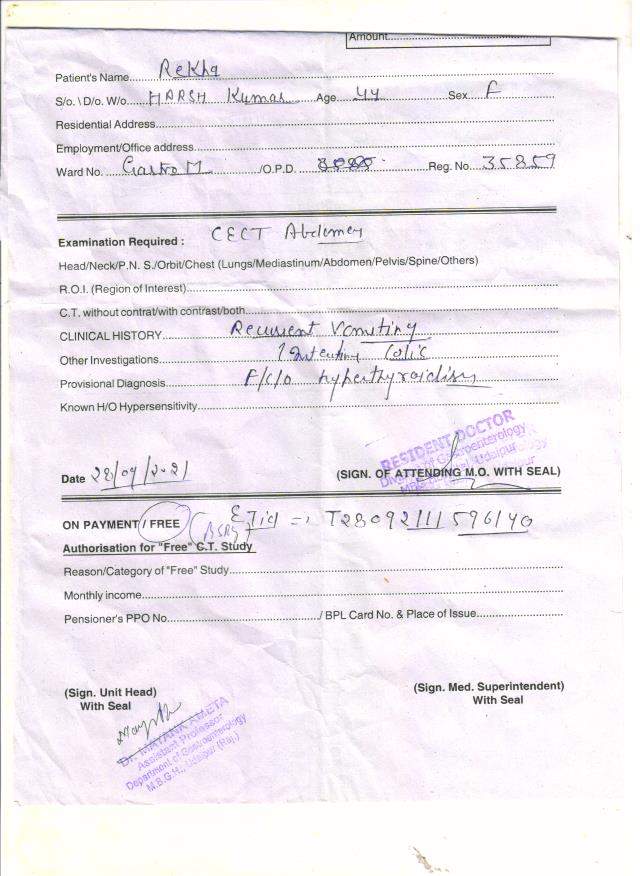 Amount
Patient's Name Rekha
S/o. \ D/o. W/o HARSH Kumar Age 44 Sex F
Residential Address
Employment/Office address
Ward No. Gastro M /O.P.D. Reg. No. 35859
Examination Required : CECT Abdomen
Head/Neck/P.N. S./Orbit/Chest (Lungs/Mediastinum/Abdomen/Pelvis/Spine/Others)
R.O.I. (Region of Interest)
C.T. without contrat/with contrast/both
CLINICAL HISTORY Recurrent Vomiting
Other Investigations Colic
Provisional Diagnosis F/c/o hyperthyroidism
Known H/O Hypersensitivity
RESIDENT DOCTOR
Gastroenterology
Udaipur
Date 28/09/2021 (SIGN. OF ATTENDING M.O. WITH SEAL)
ON PAYMENT / FREE
Authorisation for "Free" C.T. Study
Reason/Category of "Free" Study
Monthly income
Pensioner's PPO No. / BPL Card No. & Place of Issue
(Sign. Unit Head) (Sign. Med. Superintendent)
With Seal With Seal
Dr. MAYANK AMETA
Assistant Professor
Department of Gastroenterology
M.B.G.H., Udaipur (Raj.)